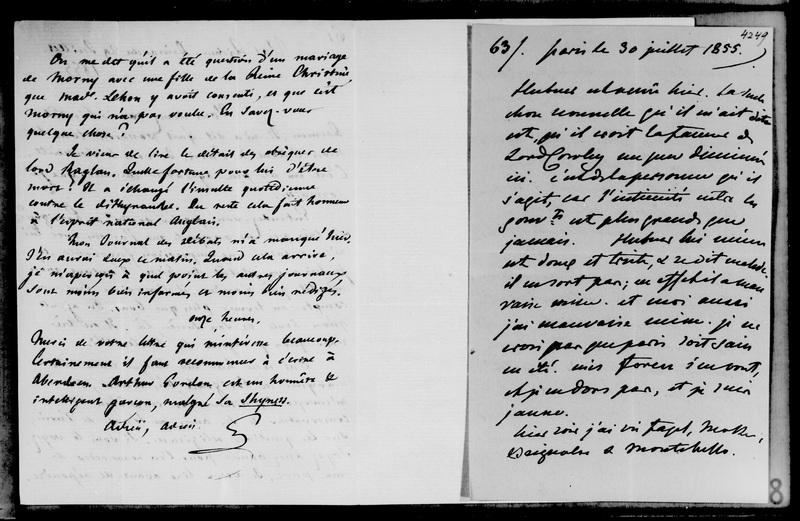 On me dit qu'il a été question d'un mariage
de Morny avec une fille de la Reine Christine
que Made. Lehon y avait consenti, et que c'est
Morny qui n'a pas voulu. En savez-vous
quelque chose ?
Je viens de lire le détail des obsèques de
lord Raglan. Quelle fortune pour lui d'être
mort ! Il a échangé l'insulte quotidienne
contre le dithyrambe. Du reste cela fait honneur
à l'esprit national Anglais.
Mon Journal des Débats m'a manqué hier.
J'en aurai deux ce matin. Quand cela arrive,
je m'aperçois à quel point les autres journaux
sont moins bien informés et moins bien rédigés.
onze heures.
Merci de votre lettre qui m'intéresse beaucoup.
Certainement il faut recommencer à écrire à
Aberdeen. Arthur Gordon est un honnête et
intelligent garçon, malgré sa Shyness.
Adieu, adieu.
G
4249
63/. Paris le 30 juillet 1855.
Hubner est venu hier. La seule
chose nouvelle qu'il m'ait dite
est, qu'il croit la faveur de
Lord Cowley un peu diminuée
ici. C'est de la personne qu'il
s'agit, car l'intimité entre les
gouvts est plus grande que
jamais. Hubner lui même
est doux et triste, & se dit malade
il ne sort pas; en effet il a mau
vaise mine. et moi aussi
j'ai mauvaise mine. je ne
crois pas que paris soit sain
en été. mes forces s'en vont,
et je ne dors pas, et je suis
jaune.
hier soir j'ai vu
& Montebello.
8